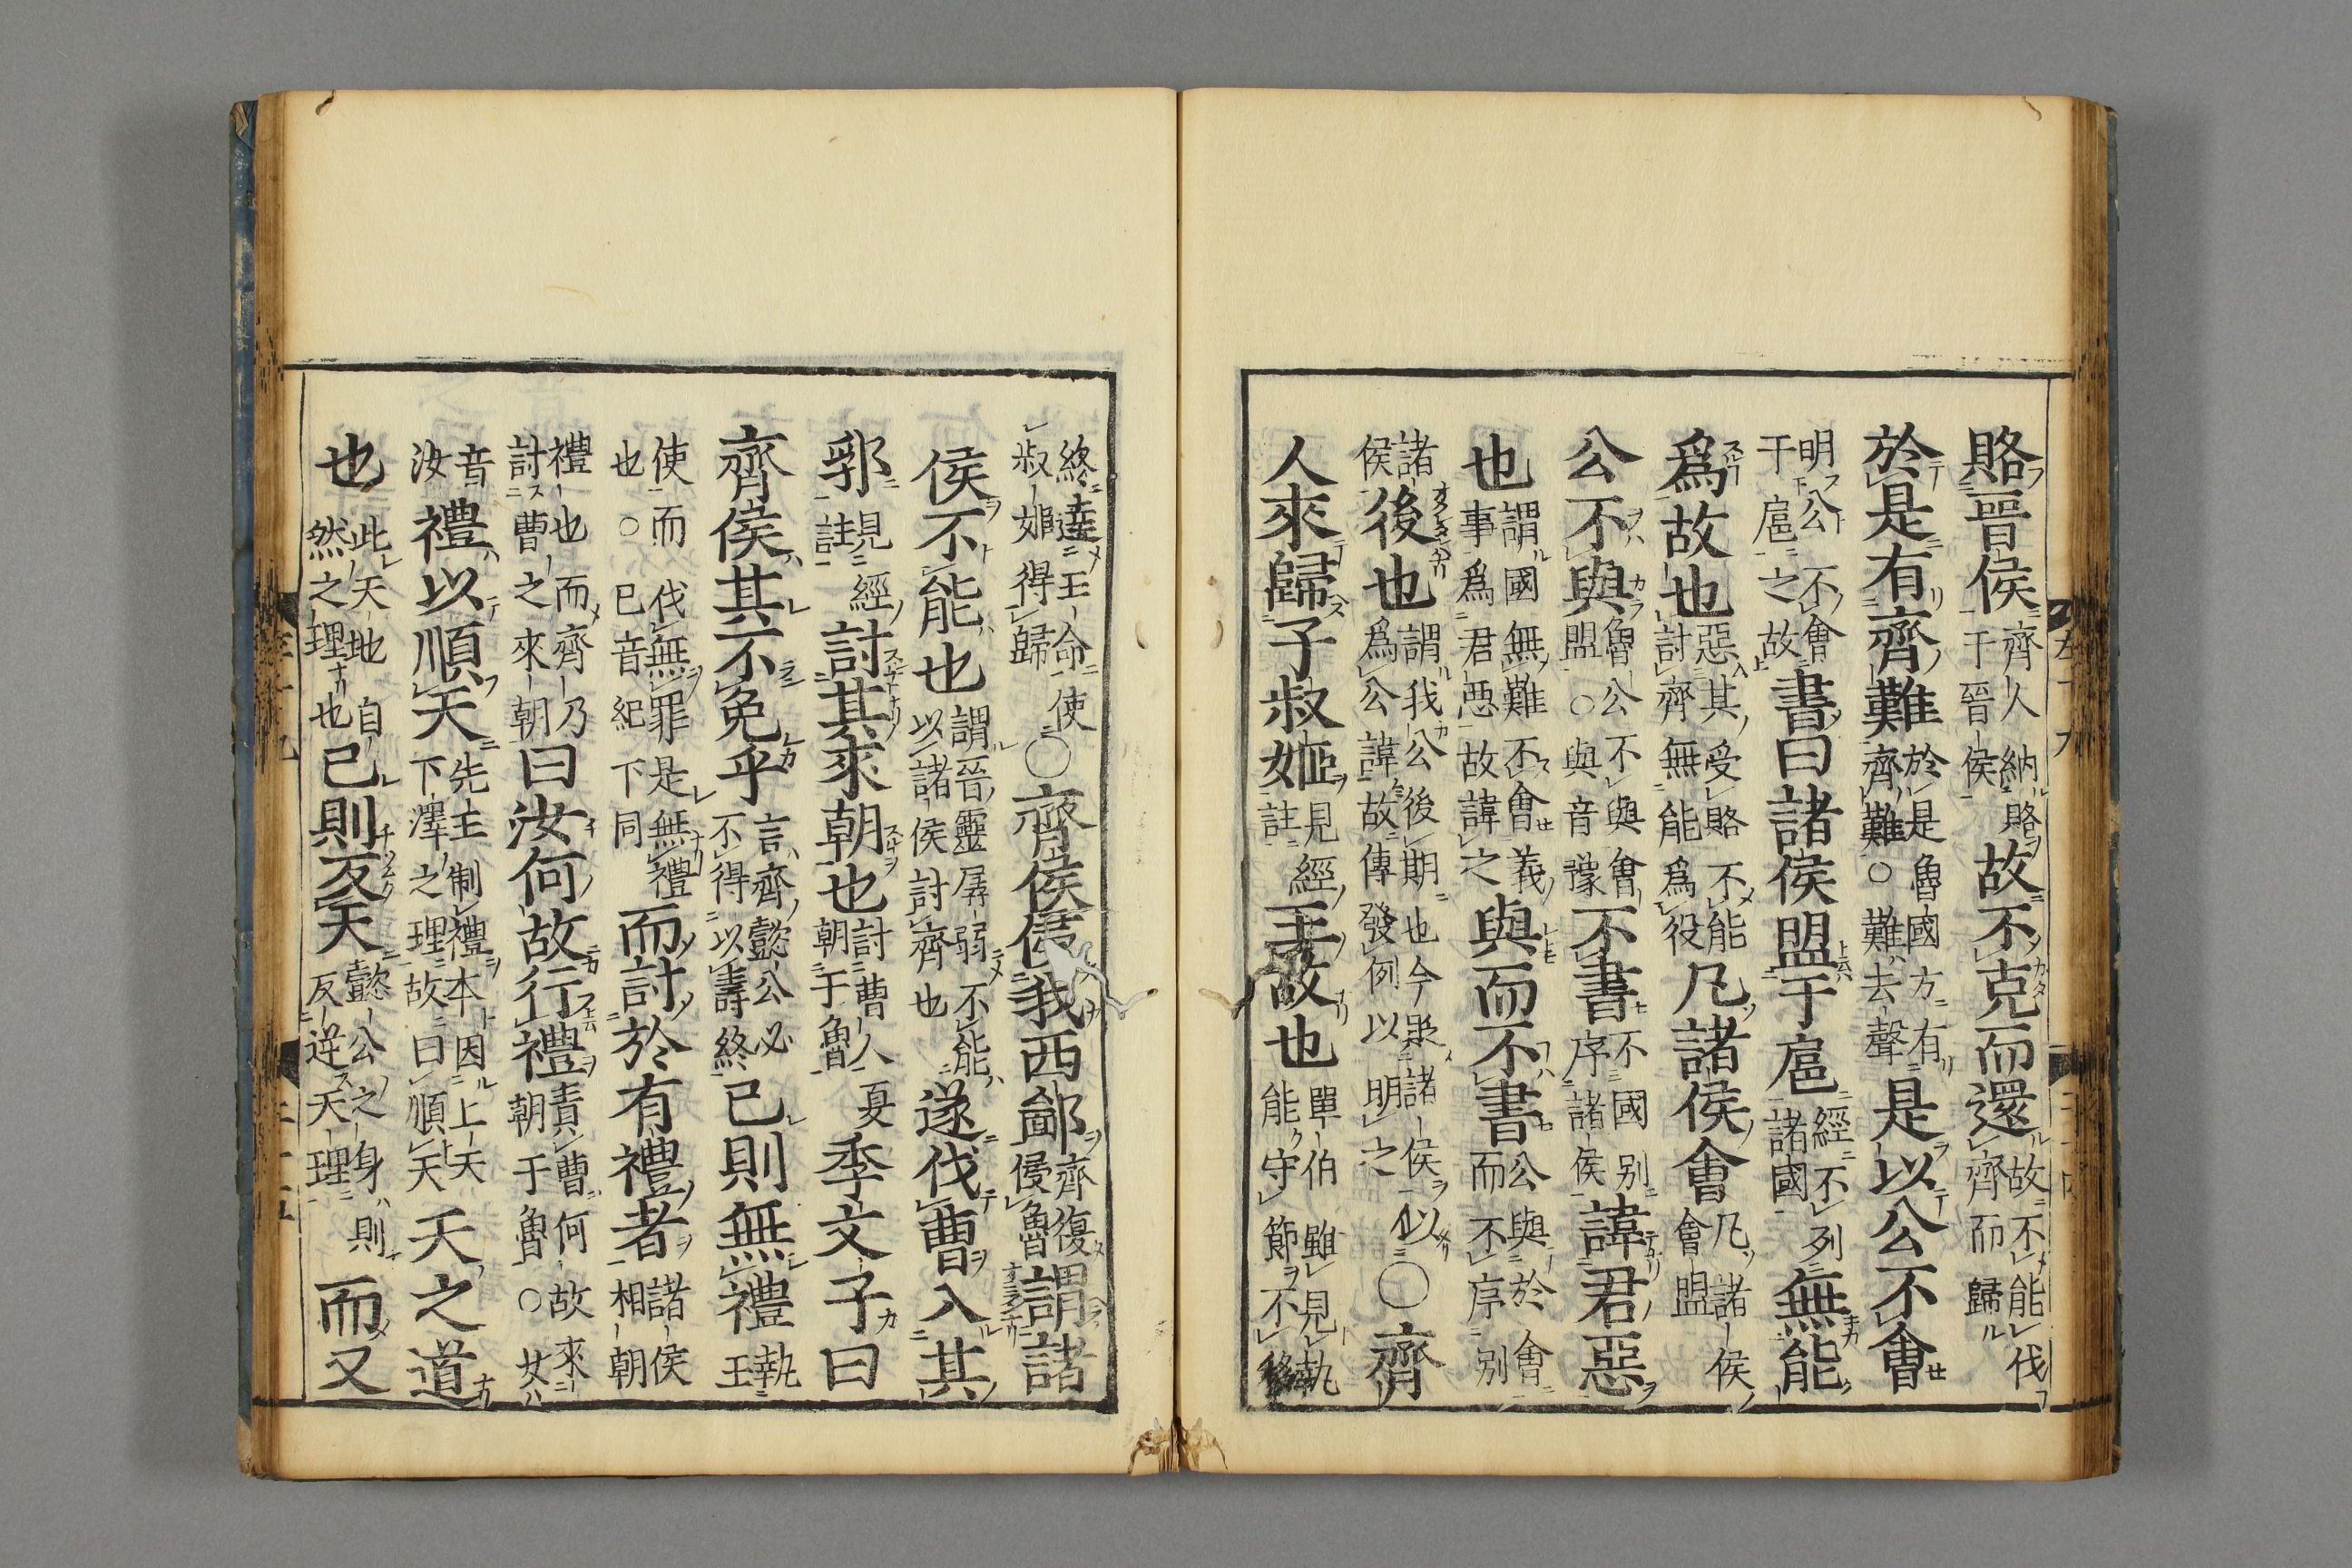 賂晉侯齊人納賂于晉侯故不克而還故不能伐齊而歸
於是有齊難於是魯國方有齊難○難去聲是以公不會
明公不會于扈之故書曰諸侯盟于扈經不列諸國無能
爲故也惡其受賂不能討齊無能爲役凡諸侯會凡諸侯會盟
公不與魯公不與會盟○與音豫不書不國別序諸侯諱君惡
也謂國無難不會義事爲君惡故諱之與而不書公與於會而不序別
諸侯後也謂我公後期也今貶諸侯以似爲公諱故傳發例以明之○齊
人來歸子叔姬見經註王故也單伯雖見執能守節不移
終達王命使叔姬得歸○齊侯侵我西鄙齊復侵魯謂諸
侯不能也謂晉靈孱弱不能以諸侯討齊也遂伐曹入其
郛見經註討其來朝也討曹人朝于魯夏季文子曰
齊侯其不免乎言齊懿公必不得以壽終已則無禮執王
使而伐無罪是無禮也○已音紀下同而討於有禮者諸侯相朝
禮也而齊乃討曹之來朝曰汝何故行禮責曹何故來朝于魯○女
音汝禮以順天先王制禮本因上天下澤之理故曰順天天之道
也此天地自然之理也已則反天懿公之身則反逆天理而又